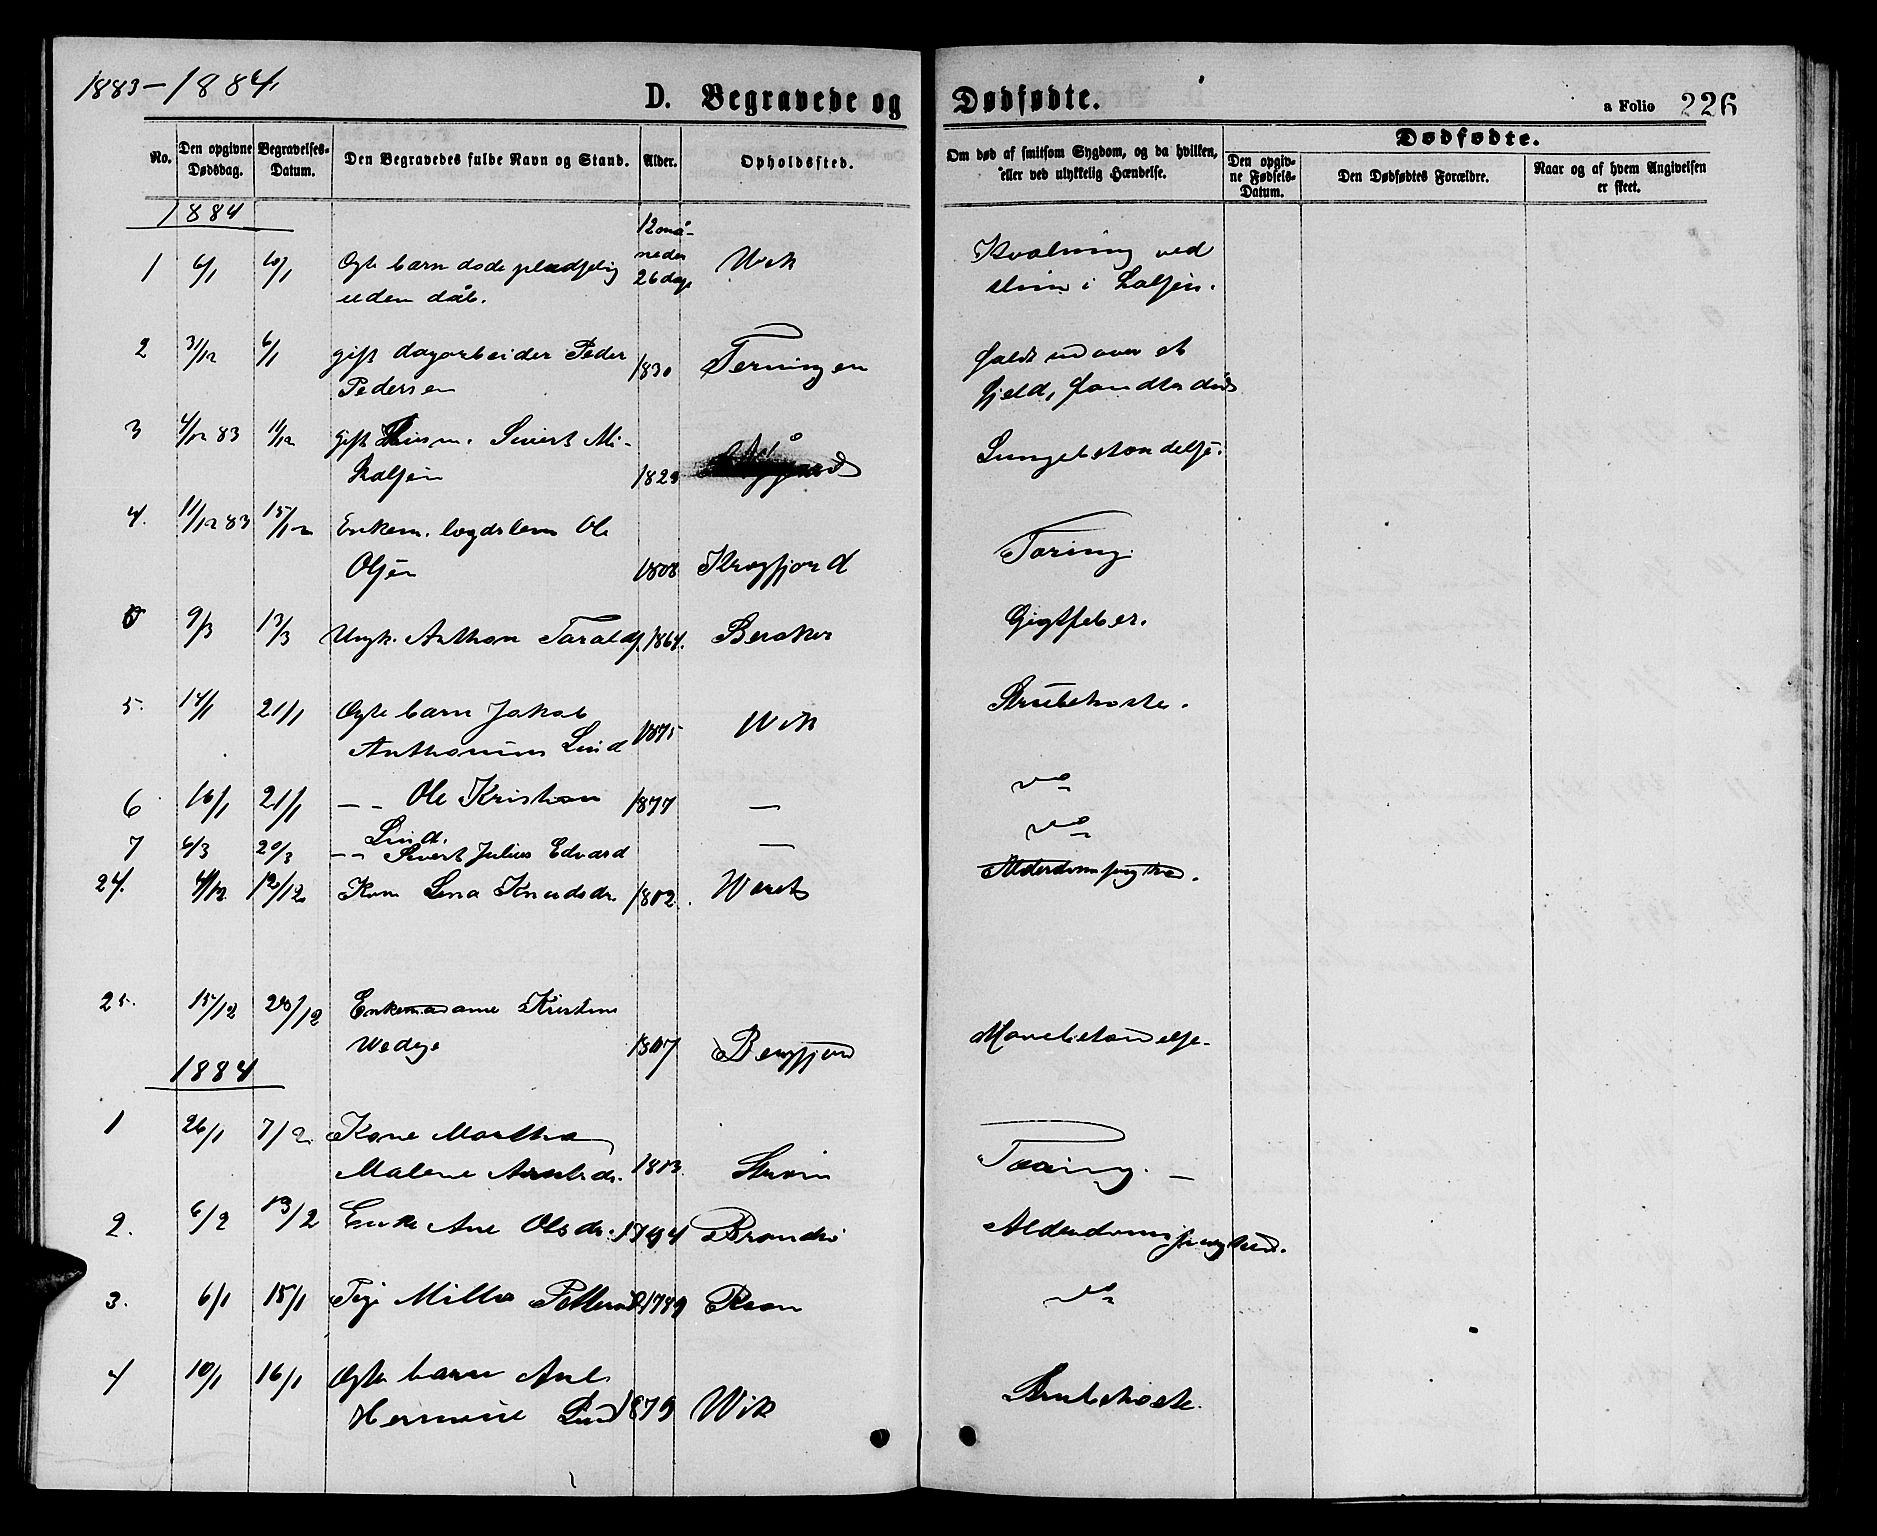 1883–1884
D. Begravede og Dødfødte.
a Folio 226
No.
Den opgivne Dødsdag.
Begravelses-Datum.
Den Begravedes fulde Navn og Stand.
Alder.
Opholdssted.
Om død af smitsom Sygdom, og da hvilken, eller ved ulykkelig Hændelse.
Dødfødte.
Den opgiv-ne Fødsels-Datum.
Den Dødfødtes Forældre.
Naar og af hvem Angivelsen er skeet.
1884
1 6/1 10/1 Ægte barn døde pludselig 12 må-neder 26 dage Wik Kvælning ved
uden dåb. slim i halsen.
2 31/12 6/1 gift dagarbeider Peder 1830 Terningen faldt ud over et
Pedersen fjeld, fandtes død
3 4/12 83 11/12 gift Sivert Mi- 1829 Lungebetændelse.
kalsen
4. 11/12 83 15/12 Enkem. lægdslem Ole
Olsen 1808 Kragfjord Tæring.
9/3 13/3 Ungk. Anthon Taralds. 1864. Gigtfeber.
5. 14/1 21/1 Ægte barn Jakob Strubehoste.
Anthonius Lind 1875 Wik
6 16/1 21/1 – – Ole Kristian 1877 — do
Lind.
7 6/3 20/3 – – Sivert Julius Edvard — do
24. 4/12 12/12 Kone Lena Knudsdr. 1802. Alderdomssvaghed.
25. 15/12 20/12 Enkemadame Kristine
Wadge 1807 Bergfjord Mavebetændelse.
1884
1 26/1 7/2 Kone Martha
Malene 1813. Strøm Tæring. –
2. 6/2 13/2 Enke Ane Olsdr. 1794 Alderdomssvaghed.
3. 6/1 15/1 Pige Milla 1789 do
4 10/1 16/1 Ægte barn Ane
Hermine Lind 1879 Wik Strubehoste.